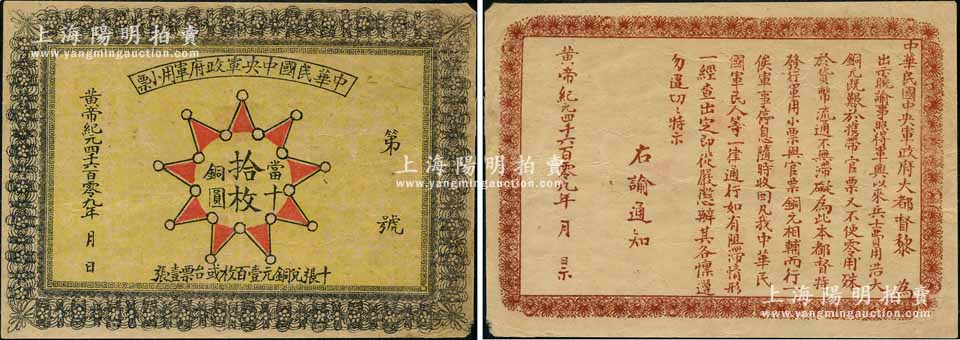 上海陽明拍賣
www.yangmingauction.com
中華民國中央軍政府軍用小票
第
號
當十
拾枚
銅圓
黃帝紀元四千六百零九年 月 日
十張兌銅元壹百枚或台票壹張
上海陽明拍賣
www.yangmingauction.com
上海陽明拍賣
www.yangmingauction.com
中華民國中央軍政府大都督黎 為
出示曉諭事照得軍興以來兵士費用浩大
銅元既艱於携帶官票又不便零用殊
於貨幣流通不無滯礙為此本都督特
發行軍用小票與官票銅元相輔而行
俟軍事停息隨時收回凡我中華民
國軍民人等一律通行如有阻滯情形
一經查出定即從嚴懲辦其各懍遵
勿違切切特示
右諭通知
黃帝紀元四千六百零九年 月 日示
上海陽明拍賣
www.yangmingauction.com